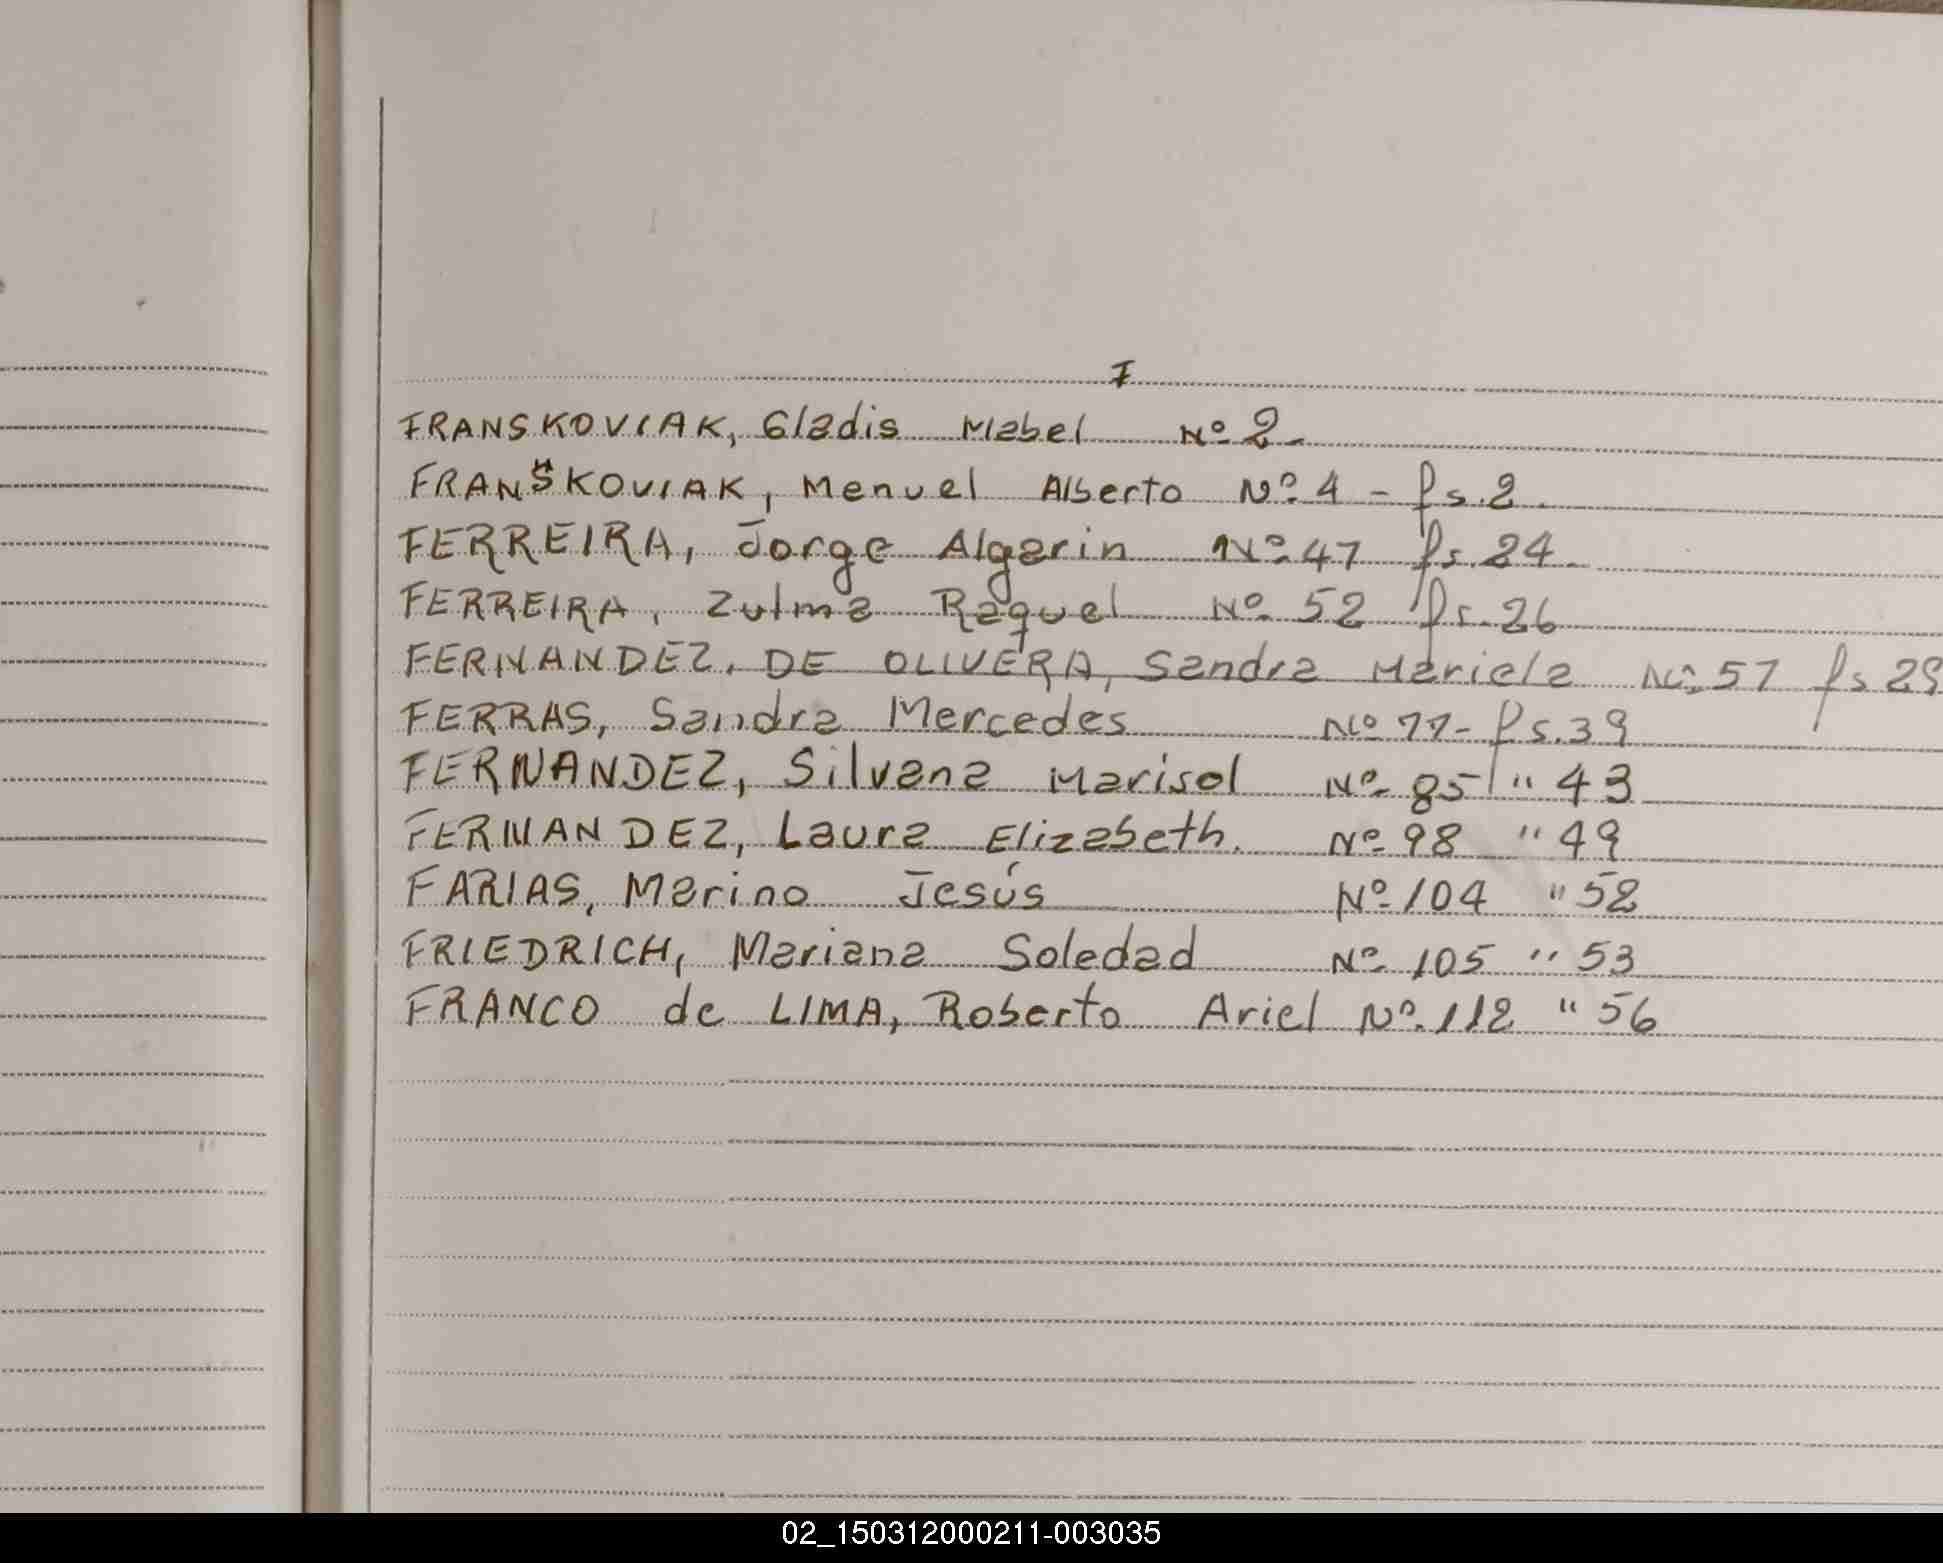 F
FRANSKOVIAK, Gladis Mabel Nº 2.
FRANSKOVIAK, Manuel Alberto Nº 4 - fs. 2.
FERREIRA, Jorge Algarin Nº 47 fs. 24.
FERREIRA, Zulma Raquel Nº 52 fs. 26
FERNANDEZ. DE OLIVERA, Sandra Mariela Nº 57 fs 29
FERRAS, Sandra Mercedes Nº 77- fs. 39
FERNANDEZ, Silvana Marisol Nº 85 " 43
FERNANDEZ, Laura Elizabeth. Nº 98 " 49
FARIAS, Marino Jesús Nº 104 " 52
FRIEDRICH, Mariana Soledad Nº 105 " 53
FRANCO de LIMA, Roberto Ariel Nº 112 " 56
02_150312000211-003035